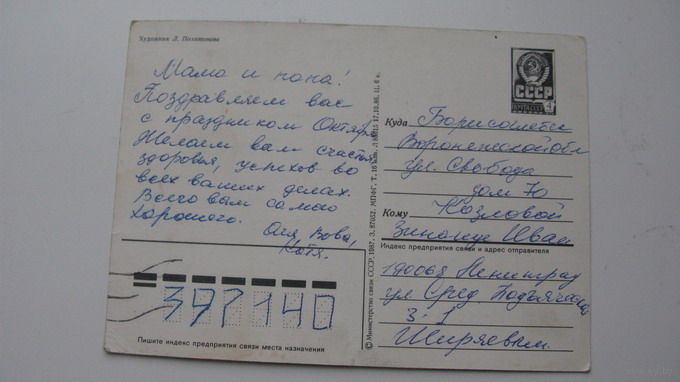 Художник Л. Похитонова
Мама и папа!
Поздравляем вас
с праздником Октября
Желаем вам счастья
здоровья, успехов во
всех ваших делах.
Всего вам самого
хорошего.
Оля, Вова,
Катя.
ПОЧТА СССР
4
Куда Борисоглебск
Воронежской обл
ул. Свобода
дом 70
Кому Козловой
Зинаиде Иван
Индекс предприятия связи и адрес отправителя
190068 Ленинград
ул Сред. Подъяческая
3-1
Ширяевым.
397140
Пишите индекс предприятия связи места назначения
© Министерство связи СССР. 1987. З. 87052. МПФГ. Т. 16 млн. 17.10.86. Ц. 6 к.